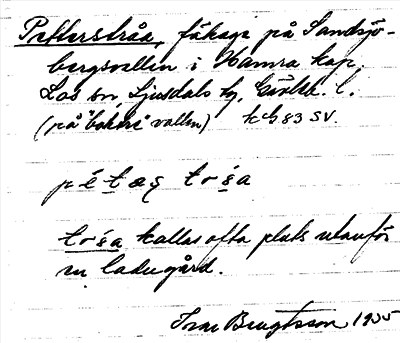 Petterstråa, fähage på Sandsjö-
bergsvallen i Hamra kap.
Los sn, Ljusdals tg, Gävleb. l.
(på "bohers" vallen) kb 83 SV.
pétæs tróa
tróa kallas ofta plats utanför
en ladugård.
Bengtsson 1935